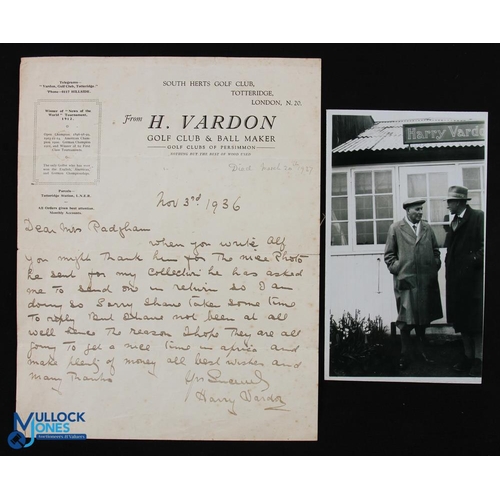 Telegrams—
"Vardon, Golf Club, Totteridge."
SOUTH HERTS GOLF CLUB,
TOTTERIDGE,
LONDON, N. 20.
Winner of "News of the
World" Tournament,
1912.
From H. VARDON
GOLF CLUB & BALL MAKER
GOLF CLUBS OF PERSIMMON
NOTHING BUT THE BEST OF WOOD USED
Died March 20th 1937
Totteridge Station, L.N.E.R.
All Orders given best attention
Monthly Accounts.
Nov 3rd 1936
Dear Mrs Padgham
when you write Alf
You might thank him for the nice Photo
he sent for my Collection he has asked
me to send one in return so I am
doing so Sorry I have taken some time
to reply But I have not been at all
well hence the reason I hope they are all
going to get a nice time in africa and
make plenty of money all best wishes and
many thanks
Yrs Sincerely
Harry Vardon
Harry Vardo
MULLOCK
JONES
Auctioneers & Valuers